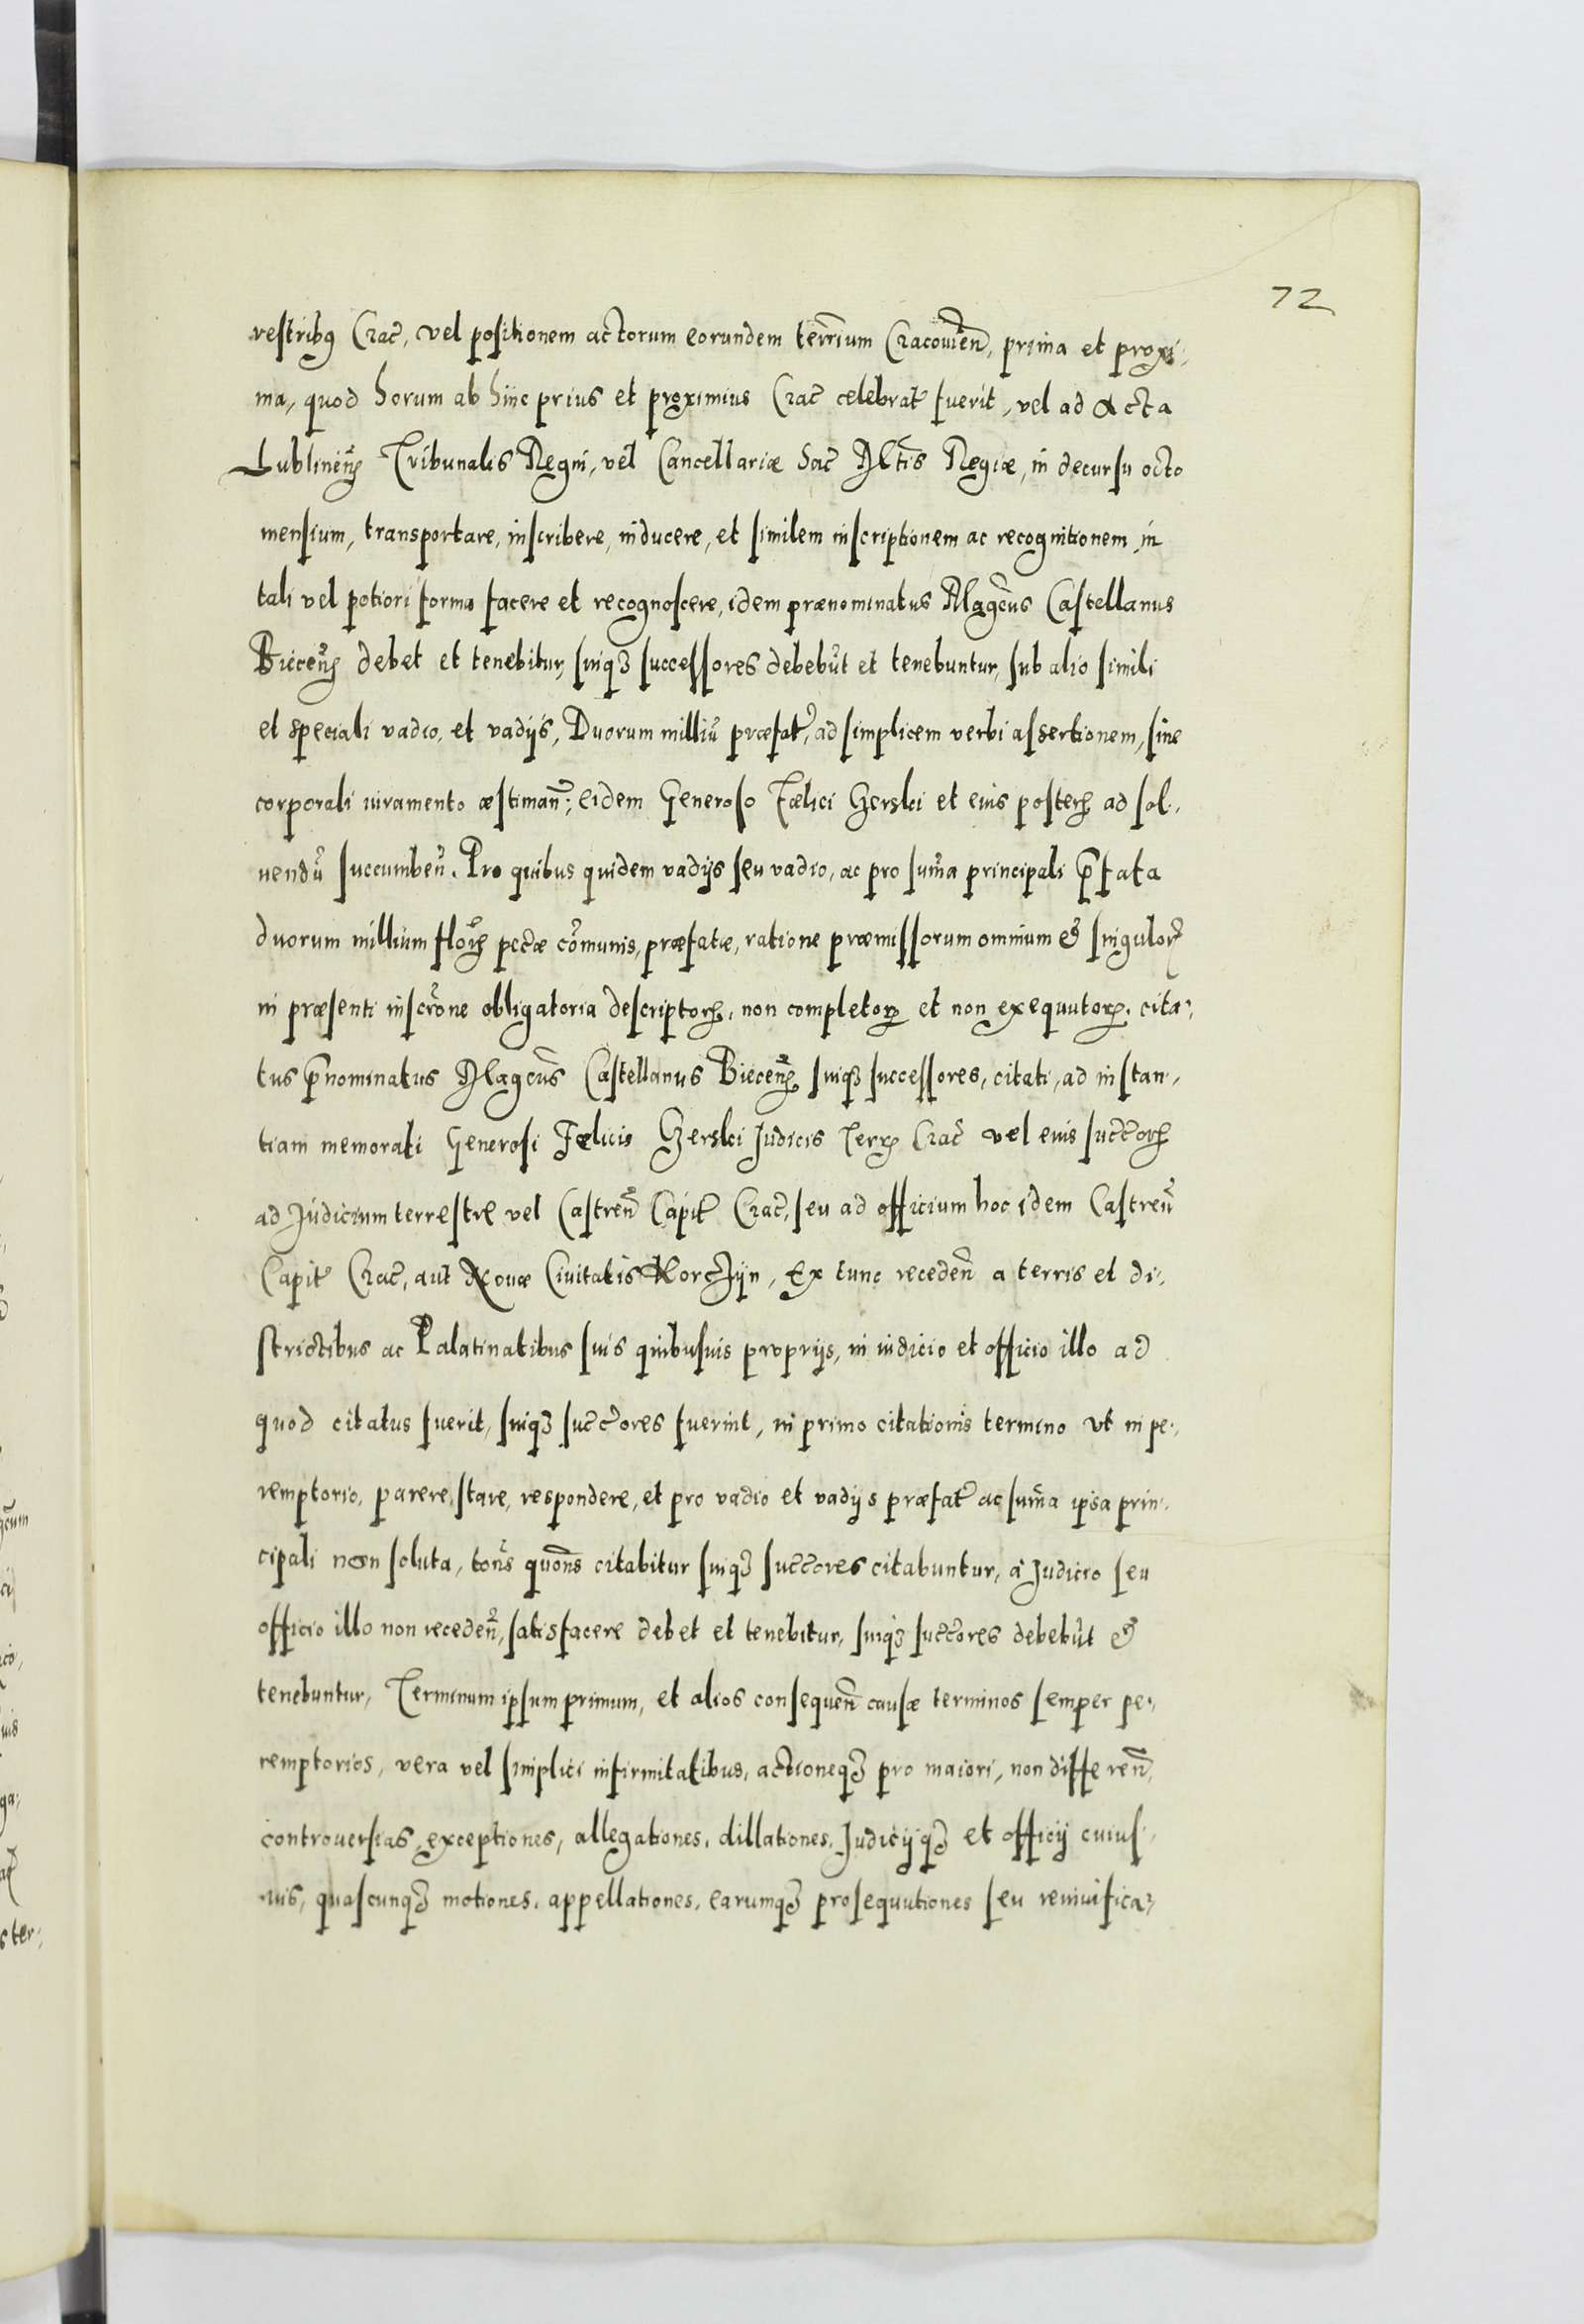 72
restribꝫ Crac̃, vel positionem actorum eorundem terr̃rium Cracovien̄, prima et proxi-
ma, quod horum ab hinc prius et proximius Crac̃ celebrat̃ fuerit, vel ad Acta
Lublinen̄ Tribunalis Regni, vel Cancellariæ Sac̃ Mt̃is Regiæ, in decursu octo
mensium, transportare, inscribere, inducere, et similem inscriptionem ac recognitionem in
tali vel potiori forma facere et recognoscere, idem prænominatus Magc̃us Castellanus
Biecen̄ debet et tenebitur, suiqꝫ successores debebũt et tenebuntur, sub alio simili
et speciali vadio, et vadijs, Duorum milliũ præfat̃, ad simplicem verbi assertionem, sine
corporali iuramento æstiman̄; eidem Generoso Fœlici Gerski et eius posterꝝ ad sol-
uendũ succumben̄. Pro quibus quidem vadijs seu vadio, ac pro sum̃a principali p̃fata
duorum millium florꝝ pec̃æ com̃unis, præfatæ, ratione præmissorum omnium & singulorꝝ
in præsenti inscr̃one obligatoria descriptorꝝ, non completorꝝ et non exequutorꝝ. cita-
tus p̃nominatus Magc̃us Castellanus Biecen̄ suiqꝫ successores, citati, ad instan-
tiam memorati Generosi Fœlicis Gerski Judicis Terrꝝ Crac̃ vel eius succ̃orꝝ
ad Judicium terrestre vel Castren̄ Capit̃ Crac̃, seu ad officium hoc idem Castren̄
Capit̃ Crac̃, aut Nouæ Ciuitatis Korczyn, Ex tunc receden̄ a terris et di-
strictibus ac Palatinatibus suis quibusuis proprijs, in iudicio et officio illo ad
quod citatus fuerit, suiqꝫ succ̃ores fuerint, in primo citationis termino ut in pe-
remptorio, parere, stare, respondere, et pro vadio et vadijs præfat̃ ac sum̃a ipsa prin-
cipali non soluta, tot̃ns quot̃ns citabitur suiqꝫ succ̃ores citabuntur, à Judicio seu
officio illo non receden̄, satisfacere debet et tenebitur, suiqꝫ succ̃ores debebũt &
tenebuntur, Terminum ipsum primum, et alios consequen̄ causæ terminos semper pe-
remptorios, vera vel simplici infirmitatibus, actioneqꝫ pro maiori, non differen̄,
controuersias, exceptiones, allegationes, dillationes, Judicijqꝫ et officij cuius-
uis, quascunqꝫ motiones, appellationes, earumqꝫ prosequutiones seu reuiuifica-